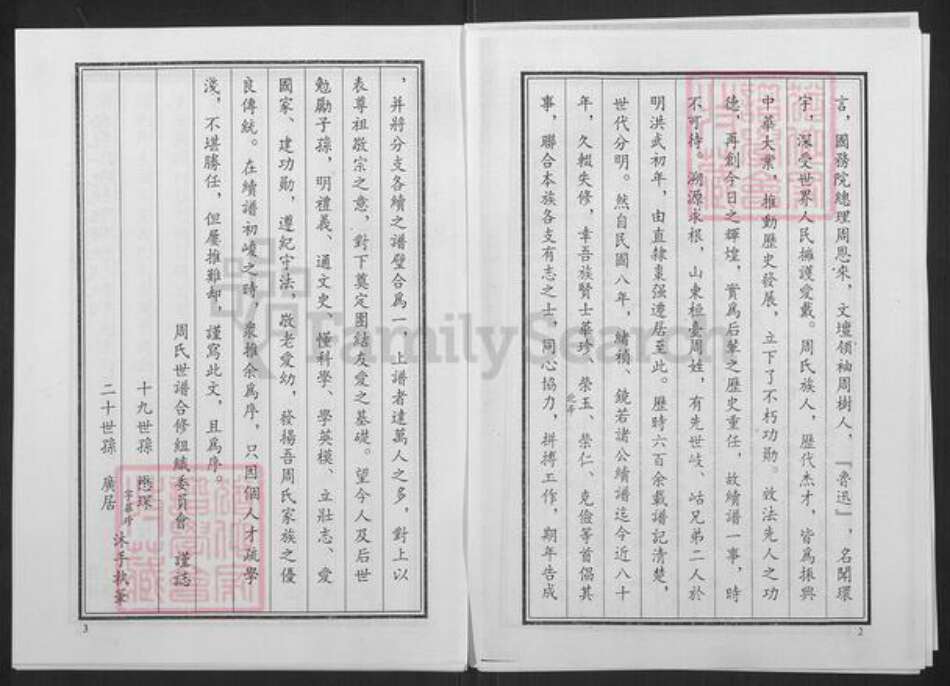 言，國務院總理周恩來，文壇領袖周樹人，『魯迅』，名聞環
宇，深受世界人民擁護愛戴。周氏族人，歷代杰才，皆爲振興
中華大業，推動歷史發展，立下了不朽功勛。效法先人之功
德，再創今日之輝煌，實爲后輩之歷史重任，故續譜一事，時
不可待。溯源求根，山東桓臺周姓，有先世岐、岵兄弟二人於
明洪武初年，由直隸棗强遷居至此。歷時六百余載譜記清楚，
世代分明。然自民國八年，緒禎、鏡若諸公續譜迄今近八十
年，久輟失修，幸吾族賢士華珍、榮玉、榮仁、克儉等首倡其
事，聯合本族各支有志之士，同心協力，拼搏工作，期年告成
2
，并將分支各續之譜璧合爲一，上譜者達萬人之多，對上以
表尊祖敬宗之意，對下奠定團結友愛之基礎。望今人及后世
勉勵子孫，明禮義、通文史、懂科學、學英模、立壯志、愛
國家、建功勛，遵紀守法、敬老愛幼，發揚吾周氏家族之優
良傳統。在續譜初峻之時，衆推余爲序，只因個人才疏學
淺，不堪勝任，但屢推難却，謹寫此文，且爲序。
周氏世譜合修組織委員會 謹誌
十九世孫 懋琛
字華珍
二十世孫 廣居
沐手執筆
3
FamilySearch